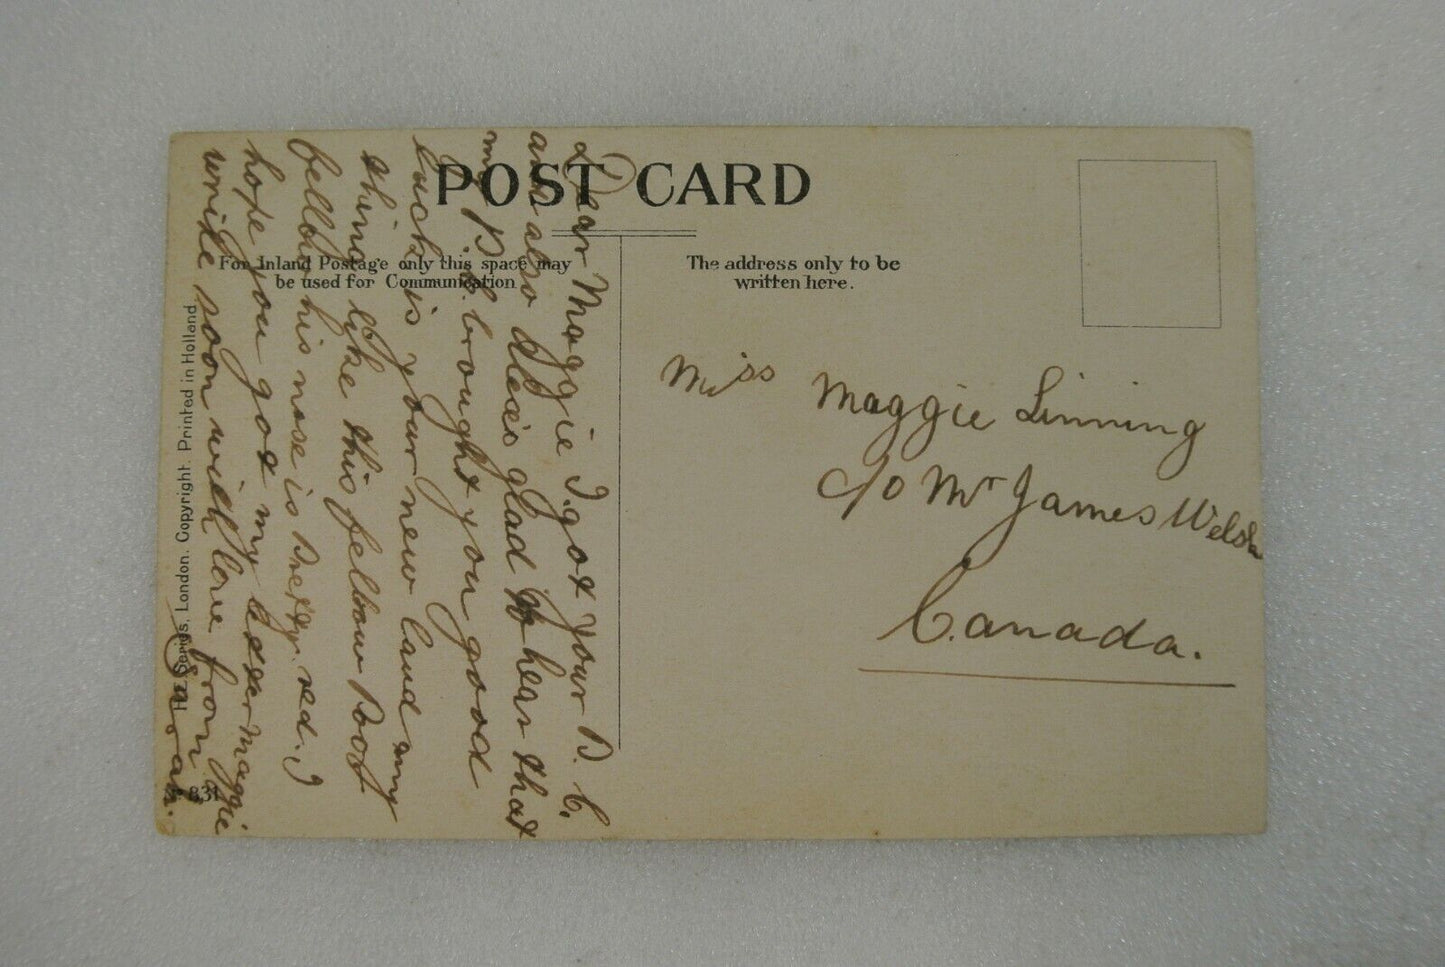 POST CARD
For Inland Postage only this space may
be used for Communication
The address only to be
written here.
Miss Maggie Linning
c/o Mr James Welsh
Canada.
Dear Maggie I got your P. C.
and also Alex's glad to hear that
my P. C. brought you good
luck is your new land my
thing like this fellow Poof
bellow his nose is Pretty red. I
hope you got my letter Maggie
write soon with love from
Sarah.
Series. London. Copyright. Printed in Holland.
831